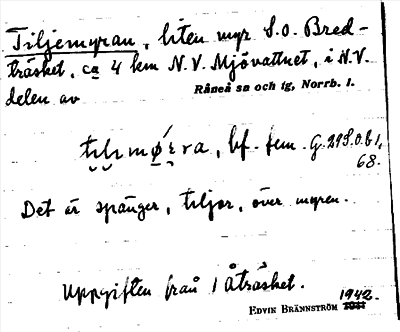 Tiljemyran, liten myr S.O. Bred-
träsket, ca 4 km N.V. Mjövattnet, i N.V.
Råneå sn och tg, Norrb. l.
delen av
bf. fem. G. 29 S.O. b 1,
68.
Det är spänger, tiljor, över myren.
Uppgiften från 1 Åträsket.
EDVIN BRÄNNSTRÖM 1942.